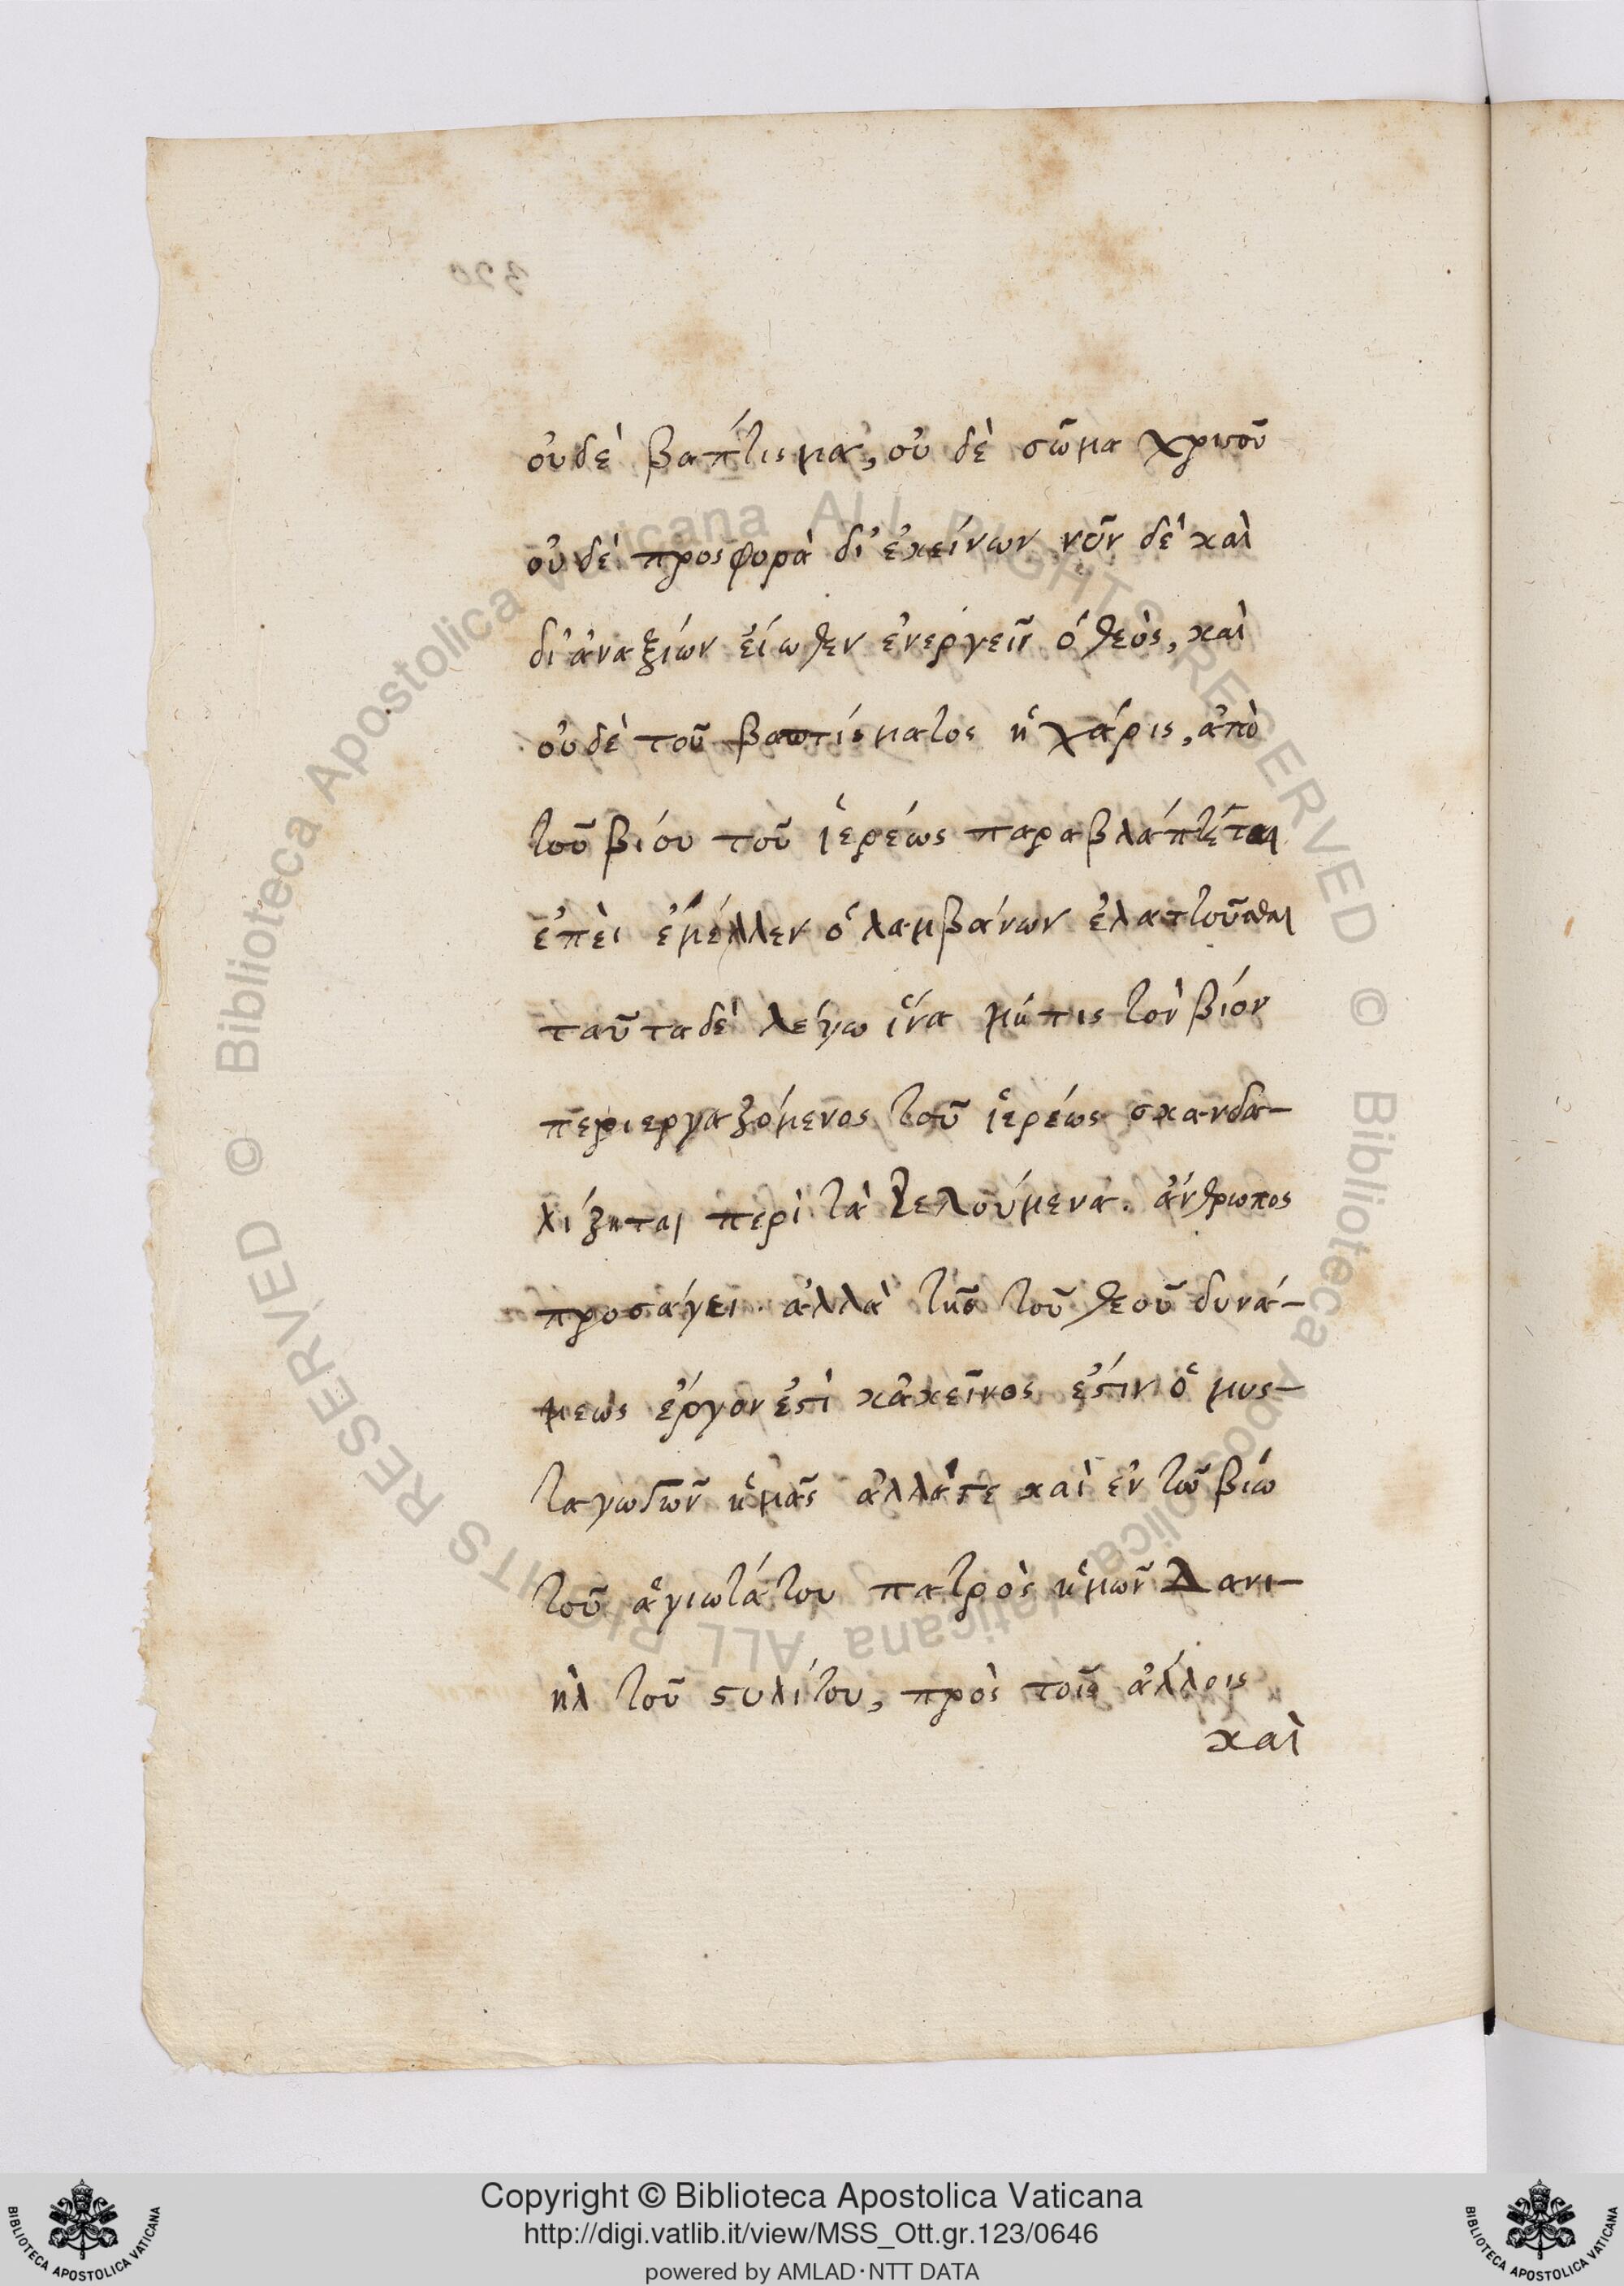 οὐδὲ βαπτισμα, οὐ δὲ σῶμα χριστοῦ
οὐδὲ προσφορὰ δι' ἐκείνων νῦν δὲ καὶ
δι' ἀναξιών εἴωθεν ἐνεργεῖν ὁ θεὸς, καὶ
οὐδὲ τοῦ βαπτίσματος ἡ χάρις, ἀπὸ
τοῦ βίου τοῦ ἱερέως παραβλάπτεται
ἐπεὶ ἐμέλλεν ὁ λαμβάνων ἐλαττοῦσθαι
ταῦτα δὲ λέγω ἵνα μή τις τὸν βίον
περιεργαζόμενος τοῦ ἱερέως σκανδα-
λίζηται περὶ τὰ τελούμενα. ἄνθρωπος
προσάγει. ἀλλὰ τῆς τοῦ θεοῦ δυνά-
μεως ἔργον ἐστὶ κἀκεῖνος ἐστιν ὁ μυσ-
ταγωγῶν ἡμᾶς ἀλλάτε καὶ ἐν τῶ βίω
τοῦ ἁγιωτάτου πατρὸς ἡμῶν Δανι-
ὴλ τοῦ στυλίτου, πρὸς τοῖς ἄλλοις
καὶ
320
© Biblioteca Apostolica Vaticana ALL RIGHTS RESERVED
© Biblioteca Apostolica Vaticana ALL RIGHTS RESERVED
BIBLIOTECA APOSTOLICA VATICANA
Copyright © Biblioteca Apostolica Vaticana
http://digi.vatlib.it/view/MSS_Ott.gr.123/0646
powered by AMLAD·NTT DATA
BIBLIOTECA APOSTOLICA VATICANA